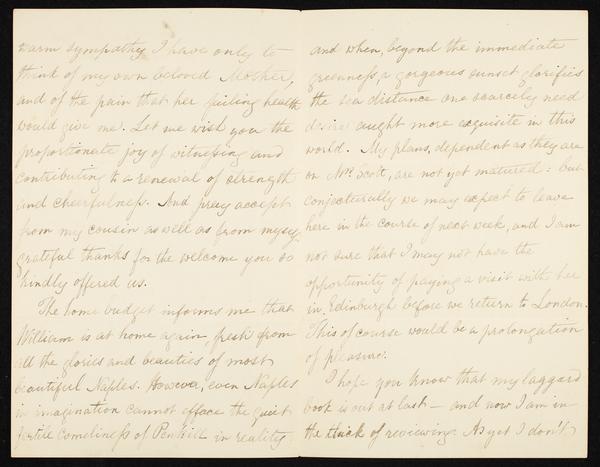 warm sympathy I have only to
think of my own beloved Mother,
and of the pain that her failing health
would give me. Let me wish you the
proportionate joy of witnessing and
contributing to a renewal of strength
and cheerfulness. And pray accept
from my cousin as well as from myself
grateful thanks for the welcome you so
kindly offered us.
The home budget informs me that
William is at home again, fresh from
all the glories and beauties of most
beautiful Naples. However, even Naples
in imagination cannot efface the quiet
fertile comeliness of Penkill in reality
and when, beyond the immediate
greenness, a gorgeous sunset glorifies
the sea distance one scarcely need
desire aught more exquisite in this
world. My plans, dependent as they are
on Mr. Scott, are not yet matured: but
conjecturally we may expect to leave
here in the course of next week, and I am
not sure that I may not have the
opportunity of paying a visit with her
in Edinburgh before we return to London.
This of course would be a prolongation
of pleasure.
I hope you know that my laggard
book is out at last – and now I am in
the thick of reviewing. As yet I don't